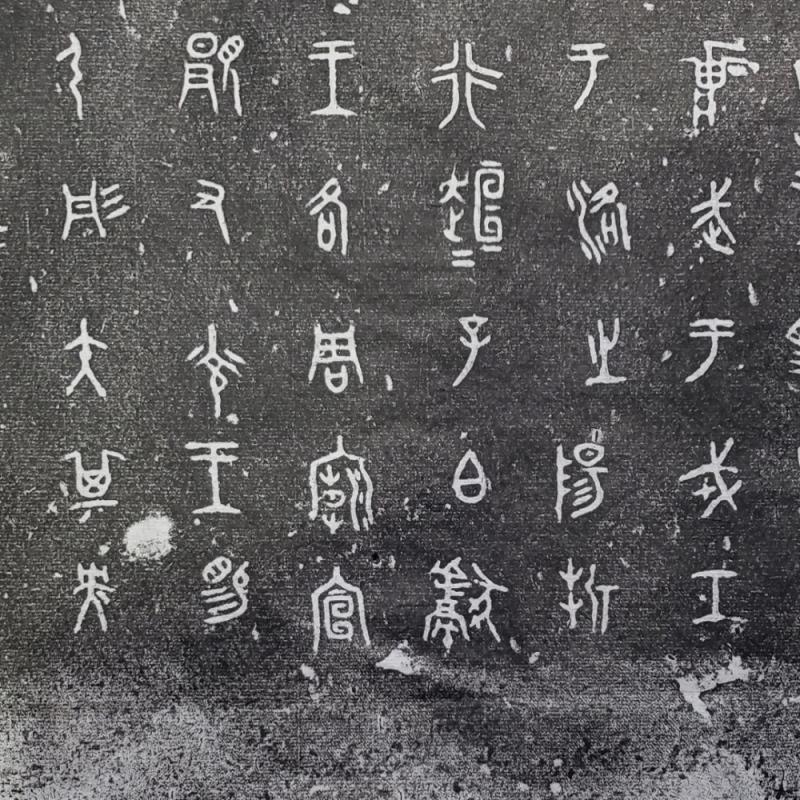 𤕌武于戎工
于洛之陽折
行趄=子白獻
王各周廟宣
顯又光王睗
弓彤矢其央